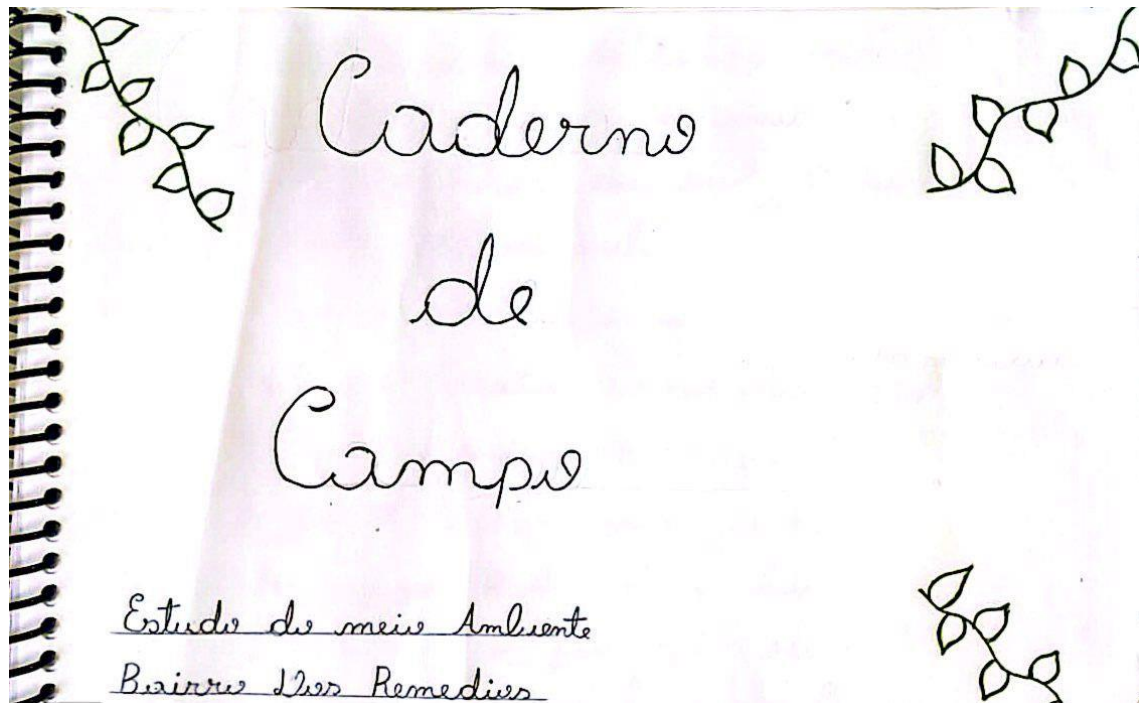 Caderno
de
Campo
Estudo do meio Ambiente
Bairro Dos Remedios